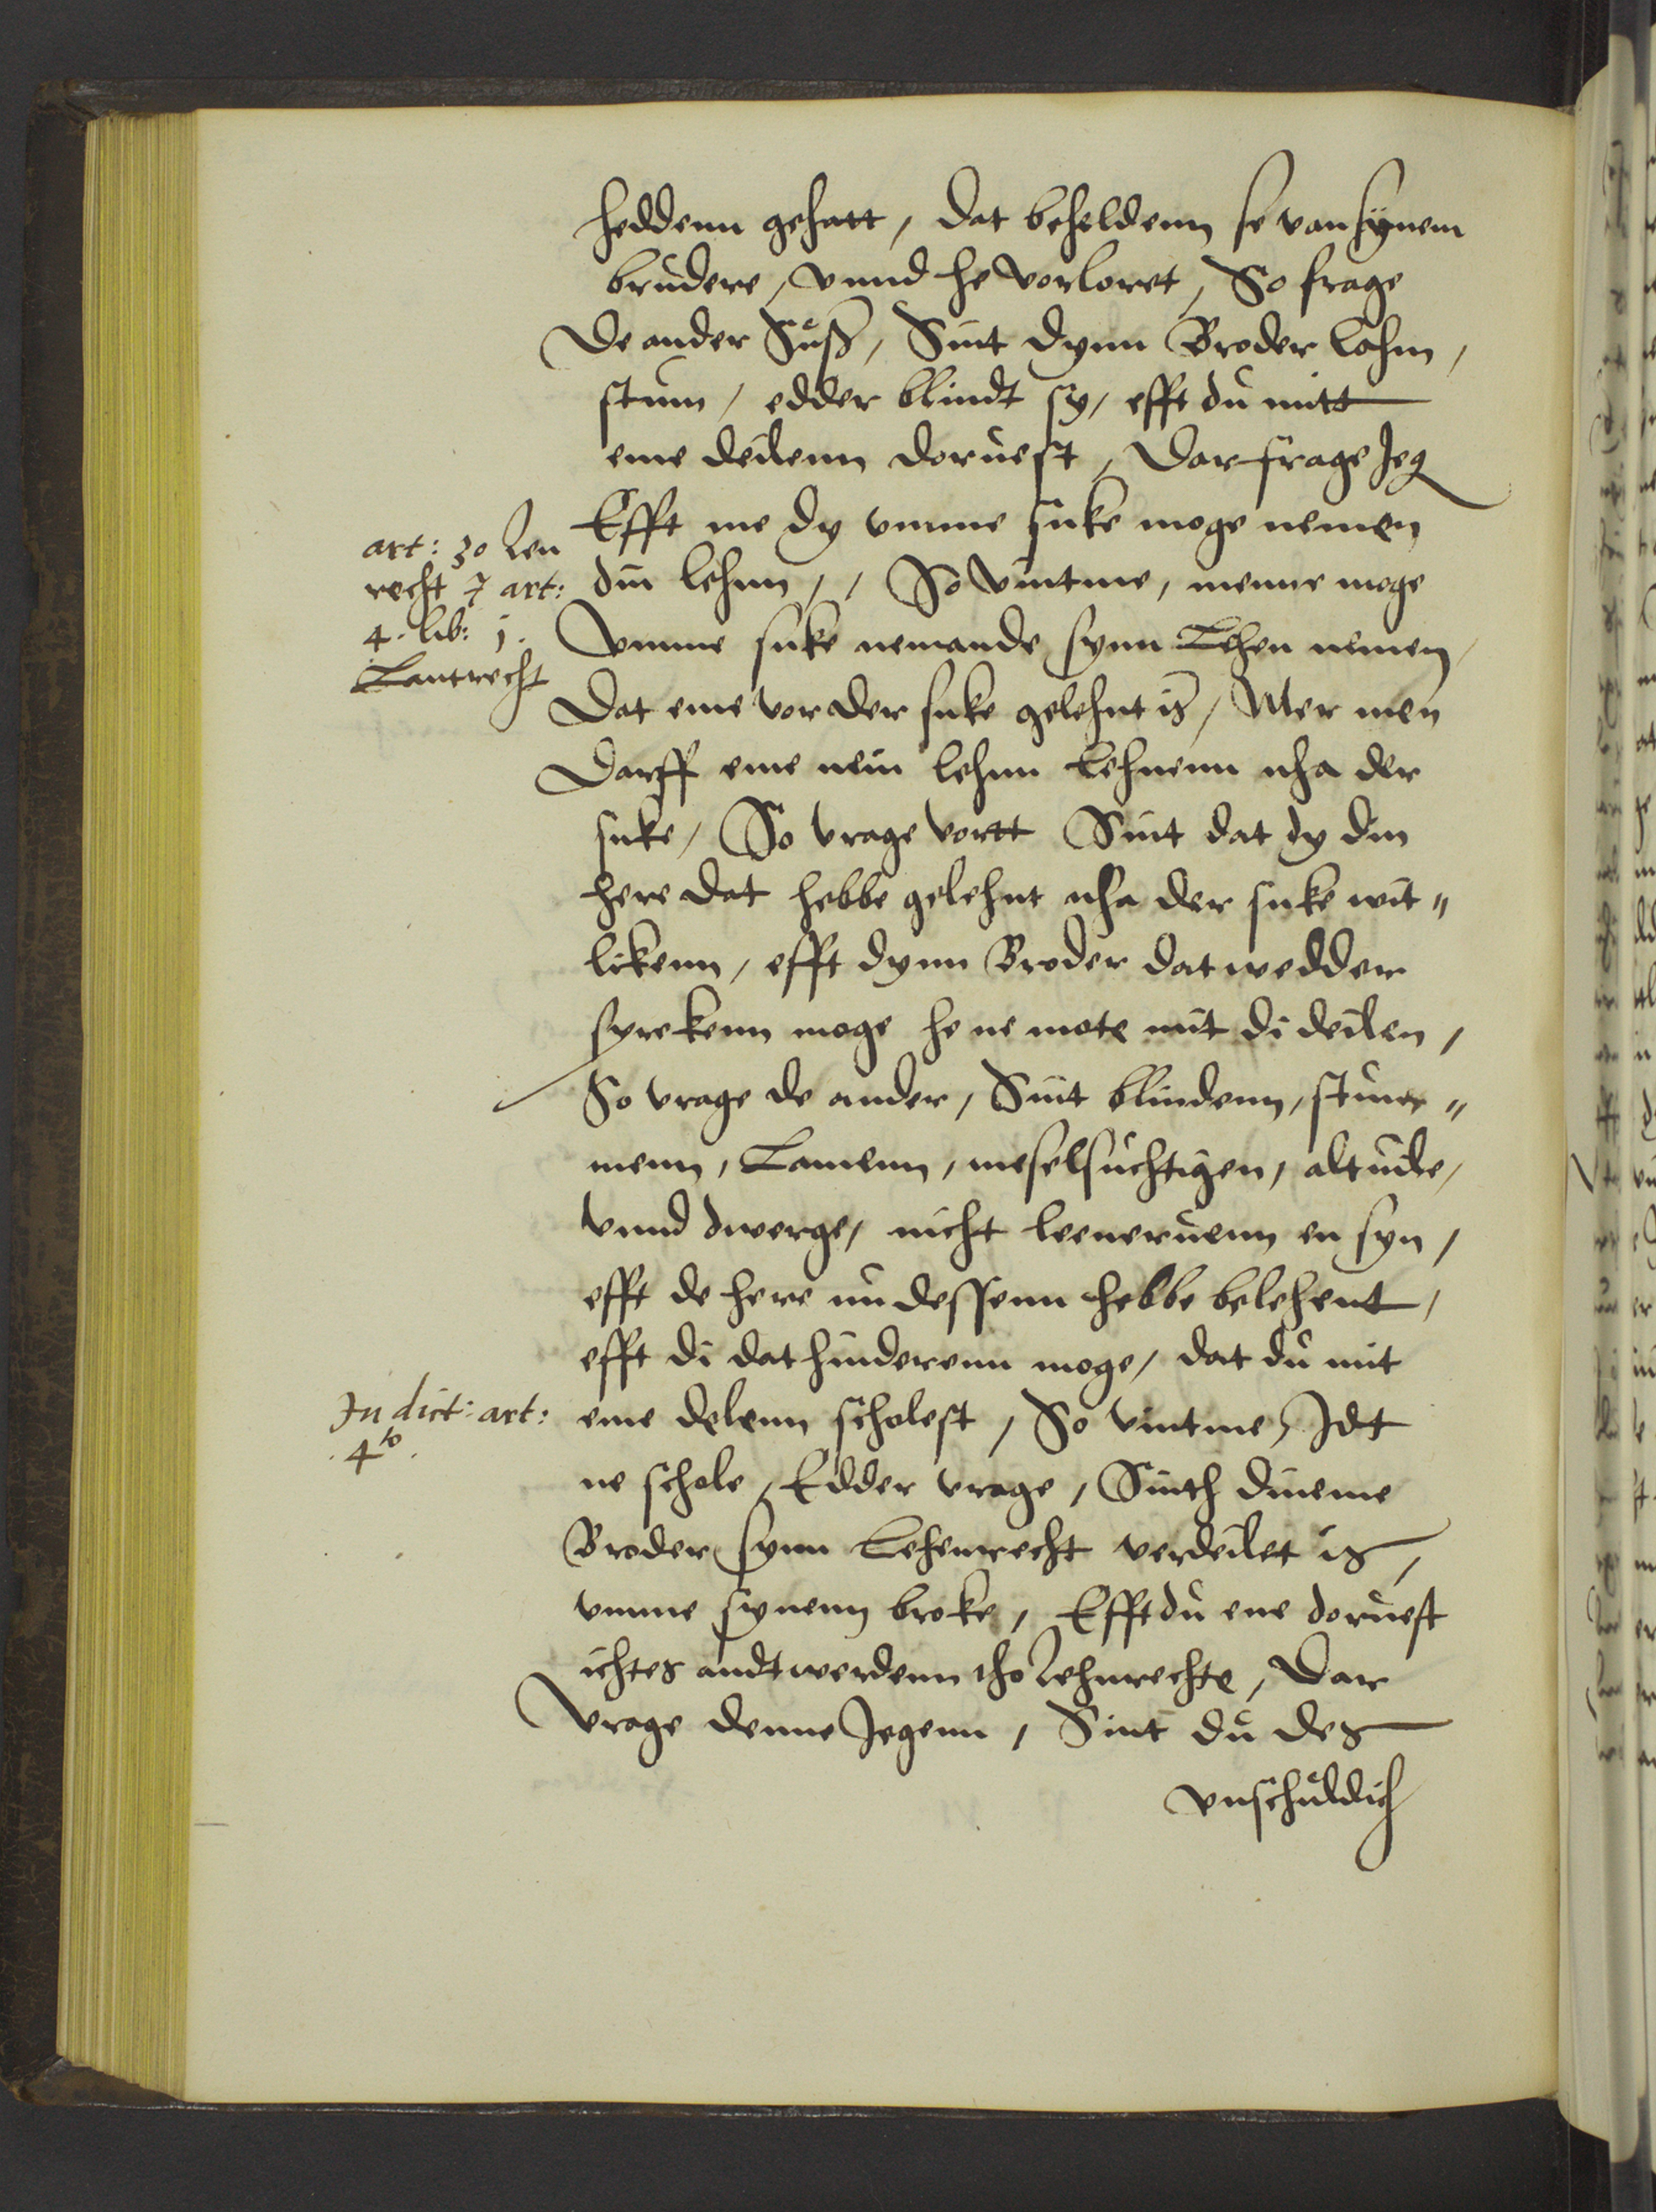 heddenn gehatt, dat beheldenn se van synem
brudere, vnnd he vorloret, So frage
De ander Suß, Sint dynn Broder Lahm,
stum, edder blindt sy, efft du mitt
eme deilenn doruest, Dar frage Jeg
Efft me dy vmme suke moge nemen
din lehnn,, So vintme, menne moge
Vmme suke nemande synn Lehen nemen,
Dat eme vor der suke gelehnt is, Mer men
Darff eme nein lehnn Lehnenn nha der
suke, So vrage vortt Sint dat dy din
here dat hebbe gelehnt nha der suke wit"
likenn, efft dynn Broder dat wedder
sprekenn moge he ne mote mit di deilen,
So vrage de ander, Sint blindenn, stum"
menn, Lamenn, meselsuchtigen, altuile,
vnnd dwerge, nicht leeneruenn en syn,
efft de here nu dessenn hebbe belehent,
efft di dat hinderenn moge, dat du mit
eme delenn scholest, So vintme, Jdt
ne schole, Edder vrage, Sinth dineme
Broder synn Lehenrecht verdeilet is,
vmme synenn broke, Efft du ene doruest
ichtes andtwerdenn tho Lehnrechte, Dar
vrage denne Jegenn, Sint du des
vnschuldich
art: 30 Len
recht 7 art:
4. lib: j.
Lantrecht
In dict: art:
4to.